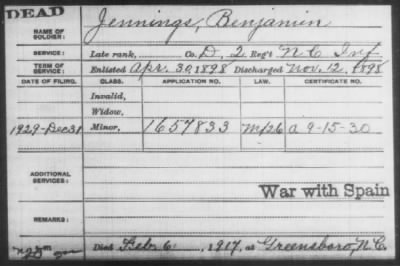 DEAD
NAME OF SOLDIER: Jennings, Benjamin
SERVICE: Late rank, Co. D, 2 Reg't N.C. Inf
TERM OF SERVICE: Enlisted Apr. 30, 1898 Discharged Nov. 12, 1898
DATE OF FILING. CLASS. APPLICATION NO. LAW. CERTIFICATE NO.
Invalid,
Widow,
1929-Dec 31 Minor, 1657833 a 9-15-30
ADDITIONAL SERVICES:
War with Spain
REMARKS:
Died Feb. 6, 1917, at Greensboro, N.C.